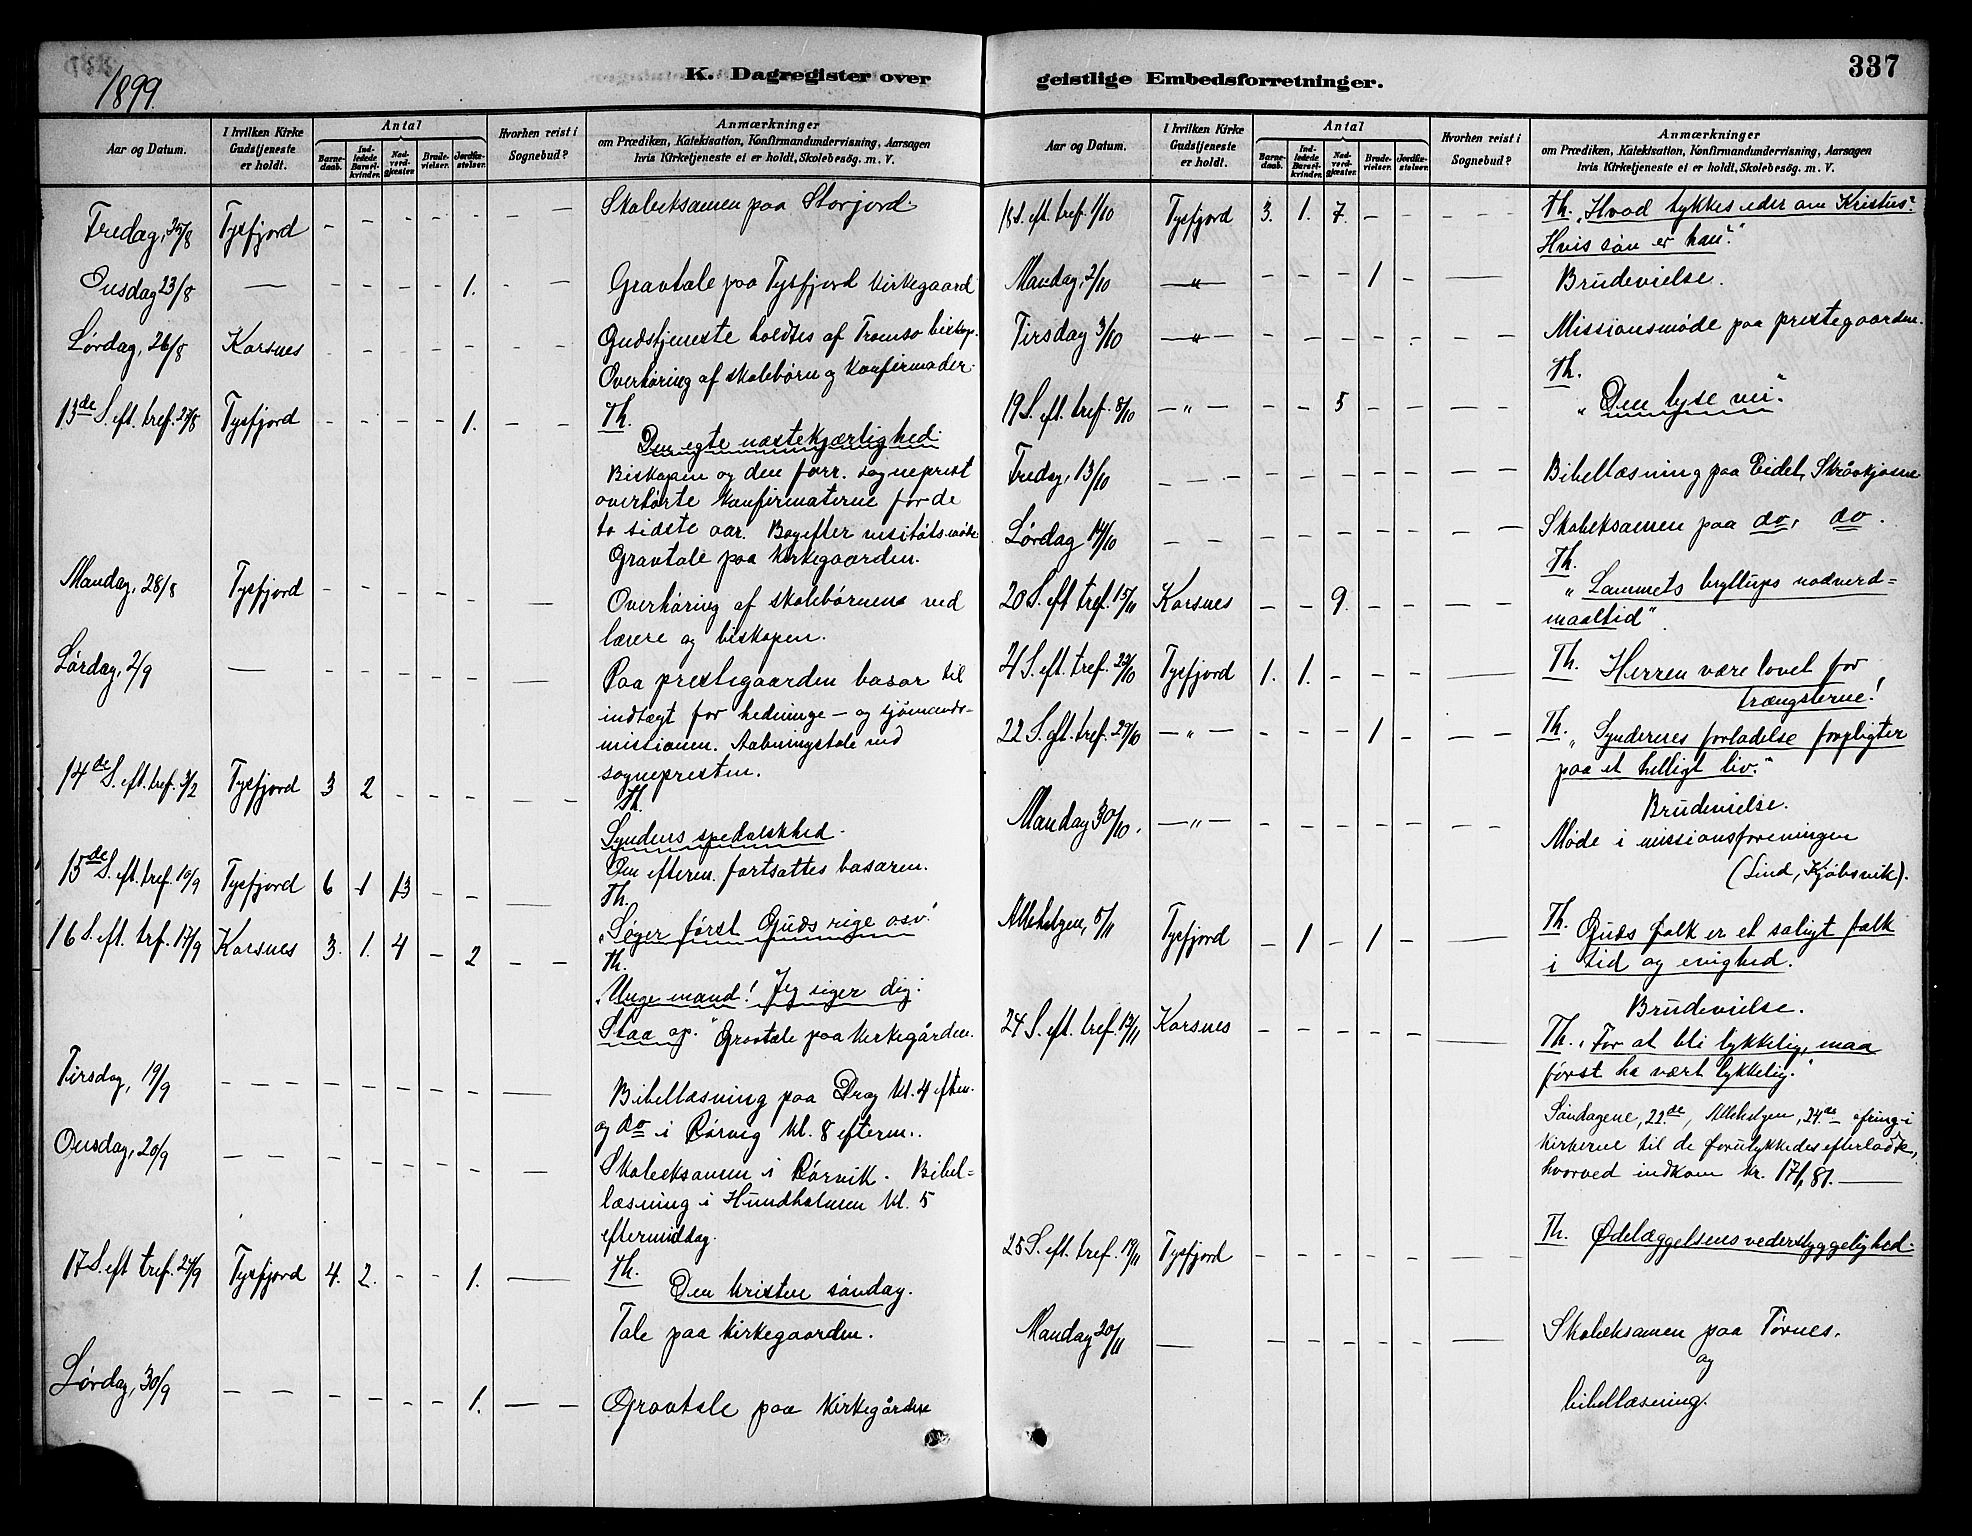 1899.
K. Dagregister over
Aar og Datum.
I hvilken Kirke Gudstjeneste er holdt.
Antal
Barnedaab.
Indledede Barselkvinder.
Nadverdgjester.
Brudevielser.
Jordfæstelser.
Hvorhen reist i Sognebud?
Anmærkninger
om Prædiken, Katekisation, Konfirmandundervisning, Aarsagen
hvis Kirketjeneste ei er holdt, Skolebesøg. m. V.
Fredag, Tysfjord - - - - - - - Skoleeksamen paa Storjord.
Onsdag 23/8 — 1. - - Gravtale paa Tysfjord kirkegaard
Lørdag, 26/8 Korsnes - - - - - - - Gudstjeneste holdtes af Tromsø biskop.
Overhøring af skolebørn og konfirmader.
13de S. eft. tref. 27/8 Tysfjord - - - - 1. - - Th.
Den egte næstekjærlighed.
Biskopen og den forr. sogneprest
overhørte konfirmaterne for de
to sidste aar. Bagefter visitatsmøde
Gravtale paa kirkegaarden.
Mandag, 28/8 Tysfjord - - - - - — Overhøring af skolebørnene ved
lærere og biskopen.
Lørdag, 2/9 — - - - - - — Paa prestegaarden basar til
indtægt for hedninge- og sjømands-
missionen. Aabningstale ved
sognepresten.
14de S. eft. tref. 3/2 Tysfjord 3 2 - - - - - Th.
Syndens spedalskhed.
Om efterm. fortsattes basaren.
15de S. eft. tref. 10/9 Tysfjord 6 1 13 - - - - Th.
"Søger først Guds rige osv."
16 S. eft. tref. 17/9 Korsnes 3. 1. 4 - 2 - - Th.
"Unge mand! Jeg siger dig:
Staa op." Gravtale paa kirkegården.
Tirsdag, 19/9 - - - - - - - — Bibellæsning paa Drag kl. 4 eftm.
og do i Rørvig kl. 8 efterm..
Onsdag, 20/9 - - - - - - - — Skoleeksamen i Rørvik. Bibel-
læsning i Hundholmen kl. 5
eftermiddag.
17 S. eft tref. 24/9 Tysfjord 4. 2. - - 1. — Th.
Den kristne søndag.
Tale paa kirkegaarden.
Lørdag, 30/9 - - - - - - 1. — - Gravtale paa kirkegården
geistlige Embedsforretninger.
337
Aar og Datum.
I hvilken Kirke Gudstjeneste er holdt.
Antal
Barnedaab.
Indledede Barselkvinder.
Nadverdgjester.
Brudevielser.
Jordfæstelser.
Hvorhen reist i Sognebud?
Anmærkninger
om Prædiken, Katekisation, Konfirmandundervisning, Aarsagen
hvis Kirketjeneste ei er holdt, Skolebesøg. m. V.
18 S. eft. tref. 1/10 Tysfjord 3. 1. 7. - - - - Th. "Hvad tykkes eder om Kristus?
Hvis søn er han?"
Mandag, 2/10 —"— - - - 1 - — Brudevielse.
Tirsdag 3/10 —"— - - - - - - - Missionsmøde paa prestegaarden.
19 S. eft. tref. 8/10 —"— - - 5 - - - - Th.
"Den lyse vei."
Fredag, 13/10 - - - - - - - - - Bibellæsning paa Eidet,
Lørdag 14/10 - - - - - - - - - Skoleeksamen paa do, do.
20 S. eft tref. 15/11 Korsnes - - 9. - - - - Th.
"Lammets bryllups nadverd-
maaltid".
21 S. eft tref. 22/10 Tysfjord 1. 1. - - - — Th. Herren være lovet for
trængslerne!
22 S. eft. tref. 29/10 —"— - - - 1 - - - Th. "Syndernes forladelse forpligter
paa et helligt liv."
Brudevielse.
Mandag 30/10. —"— - - - - - - - Møde i missionsforeningen
(Lind, Kjøbsvik).
Allehelgen, 5/11 Tysfjord - 1 - 1 - — Th. Guds folk er et saligt folk
i tid og evighed.
Brudevielse.
24 S. eft. tref. 12/11 Korsnes - - - - - — Th. "For at bli lykkelig, maa
først ha vært lykkelig."
Søndagene, 22de, Allehelgen, 24de ofring i
kirkerne til de forulykkedes efterladte,
hvorved indkom kr. 171,81. —
25 S. eft. tref. 19/11 Tysfjord - - - - - - - Th. Ødelæggelsens vederstyggelighed.
Mandag 20/11 — - - - - - — Skoleeksamen paa Tørnes.
og
bibellæsning.